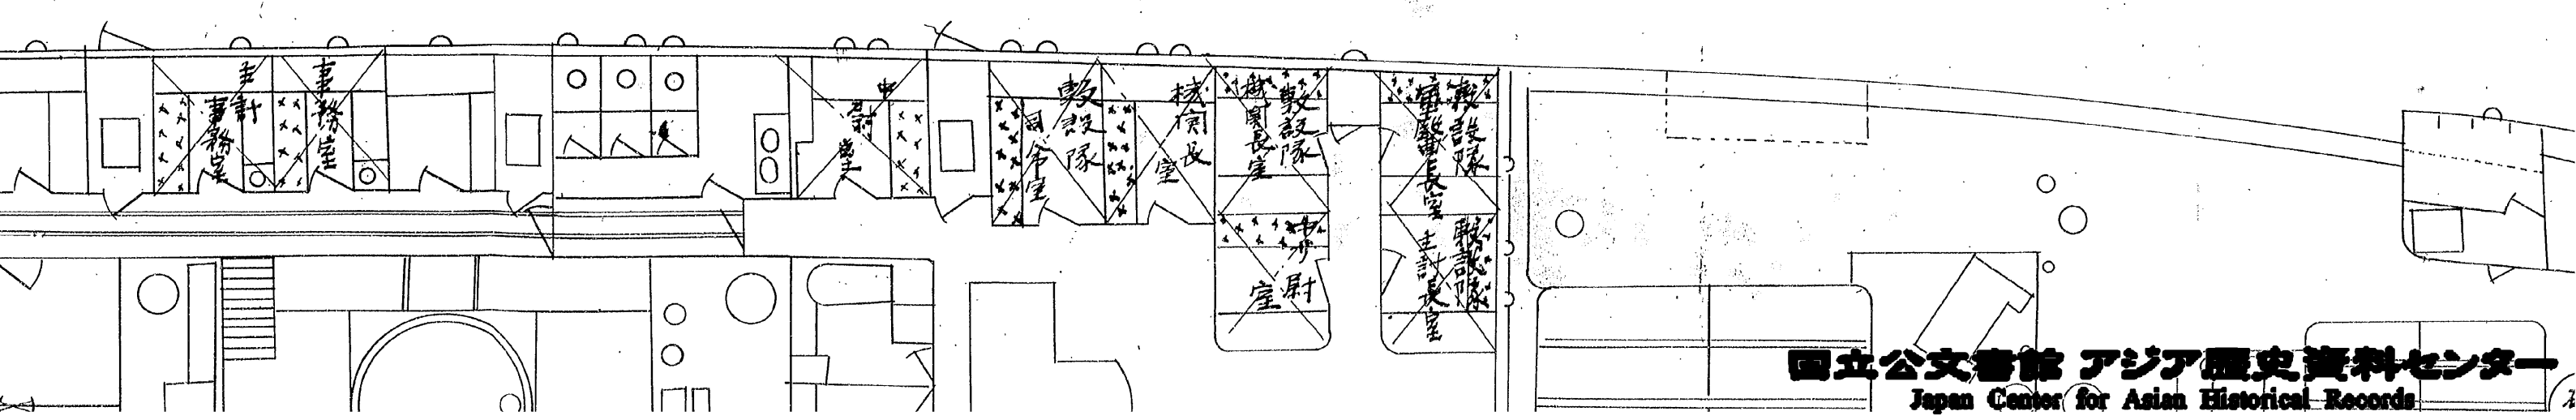 主計
事務室
事務室
中尉室
敷設隊
司令室
機関長室
敷設隊
機関長室
中少尉室
敷設隊
軍医長室
敷設隊
主計長室
国立公文書館 アジア歴史資料センター
Japan Center for Asian Historical Records